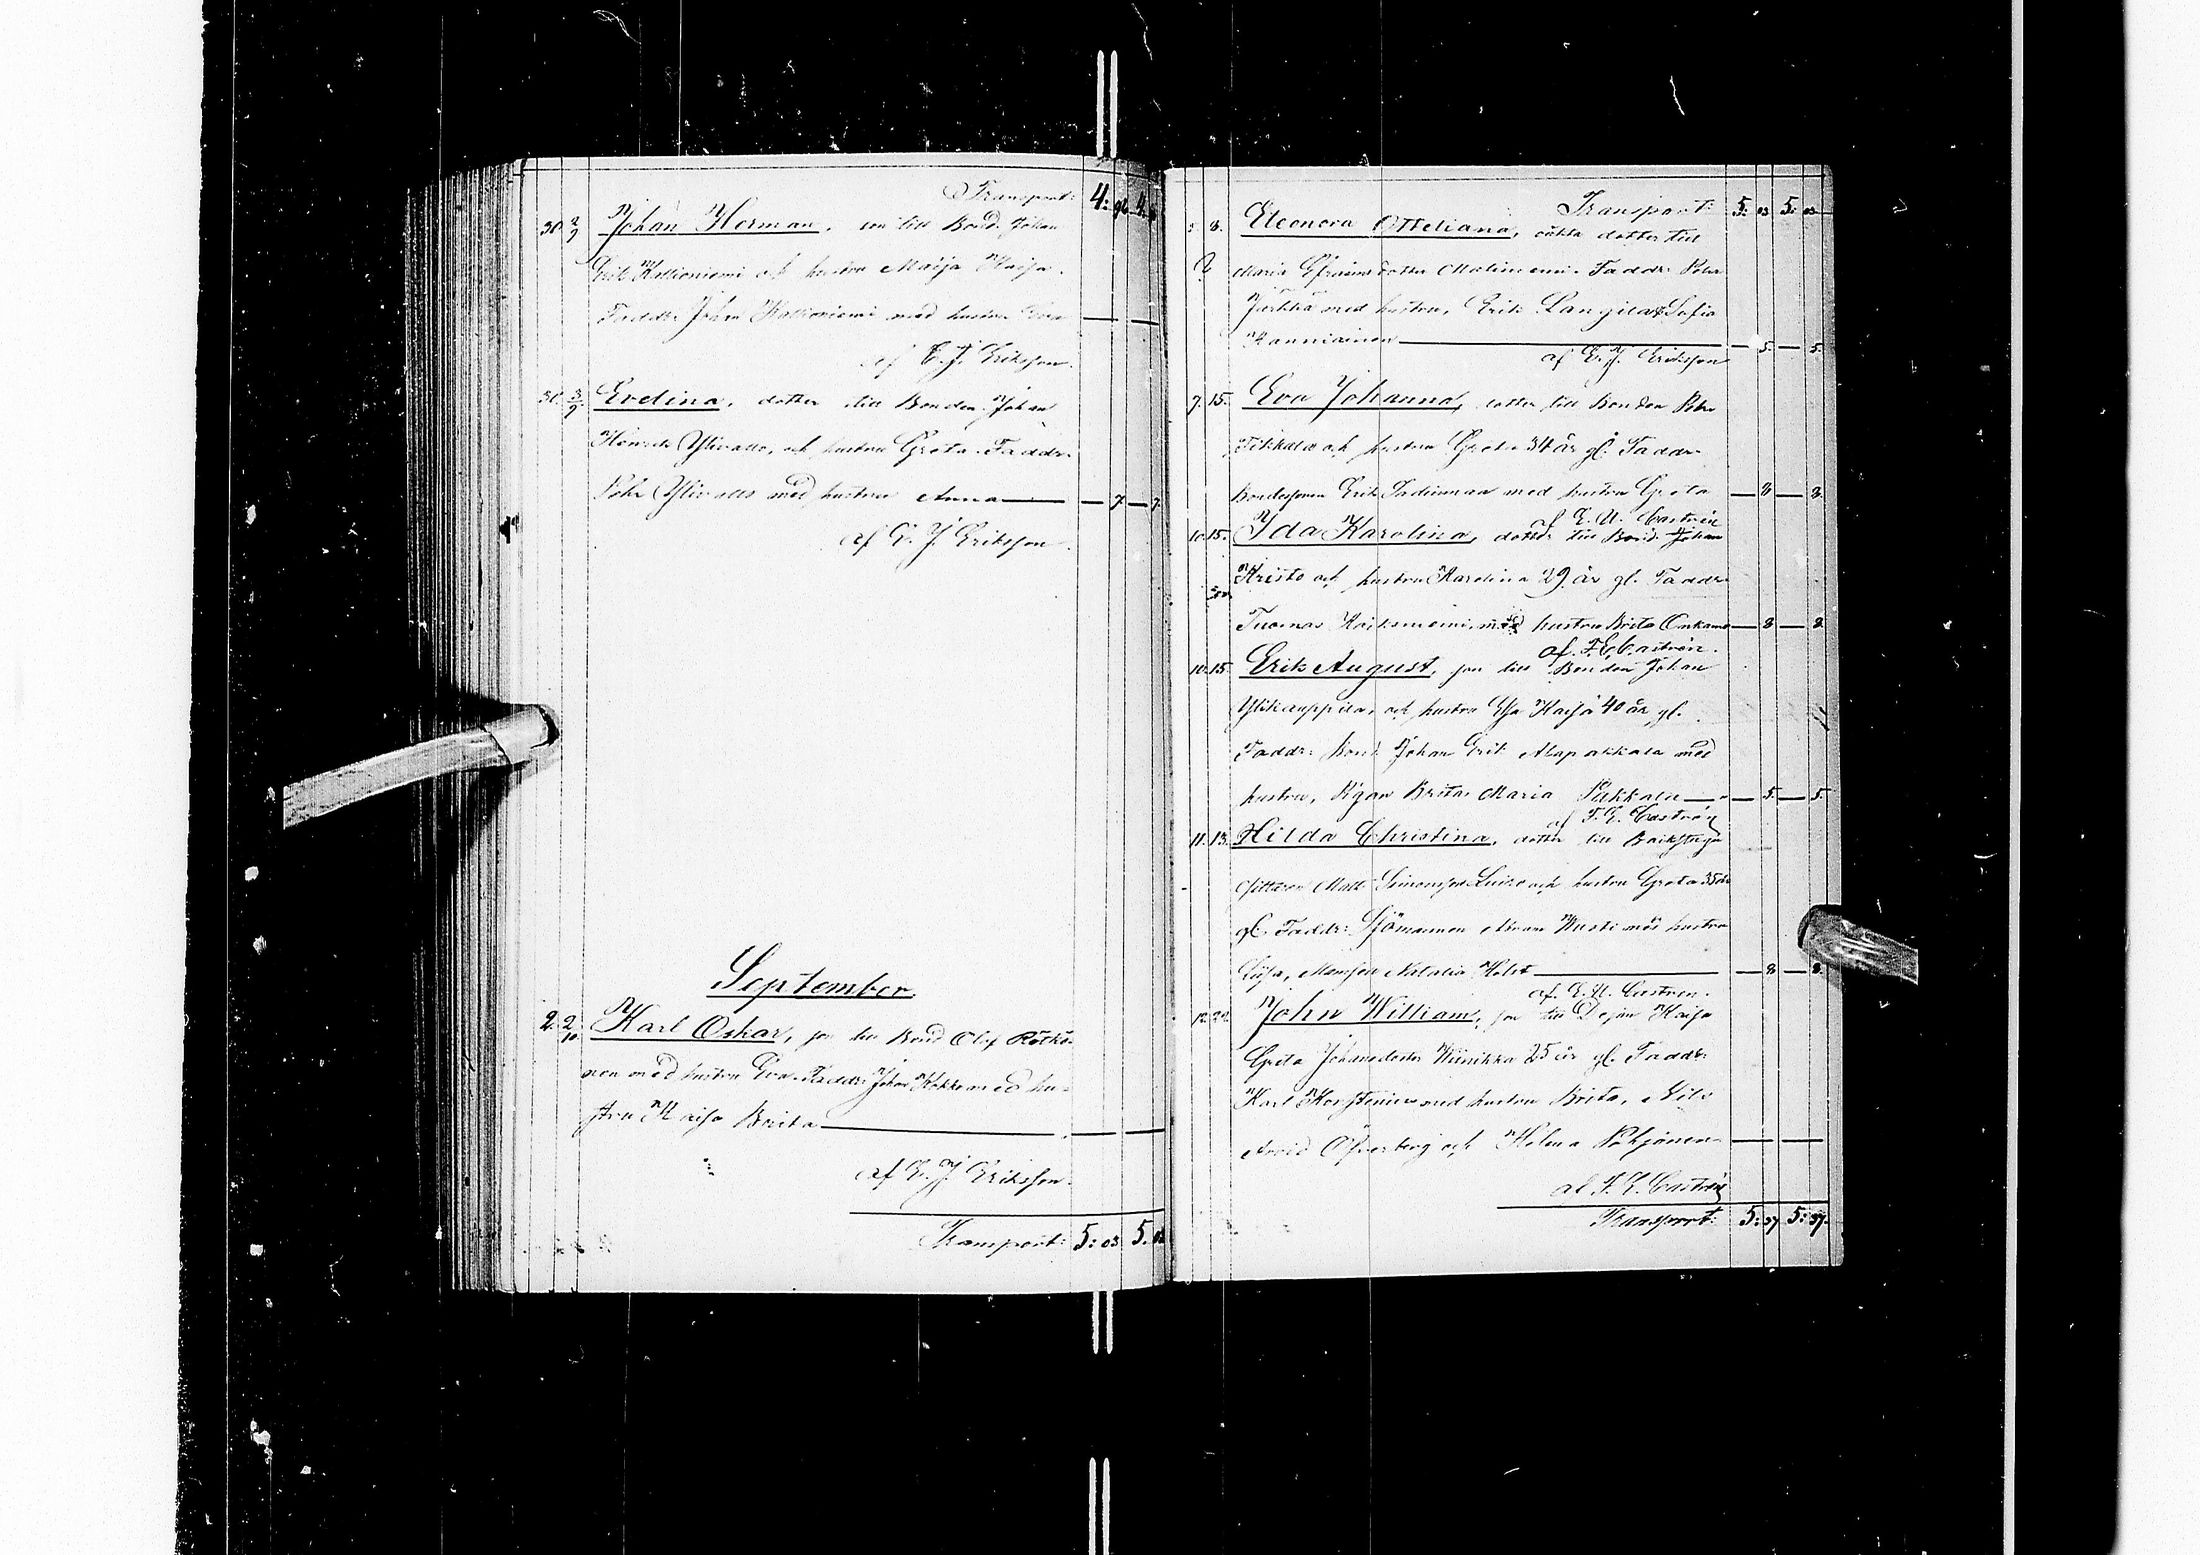 Transport: 4: 96 4.
30. 2/9 Johan Herman, son till Bond. Johan
Erik Kallioniemi och hustru Maija Kaisa.
Faddr: Johan Kallioniemi med hustru Eva
af E. J. Eriksson.
31. 3/9 Evelina, dotter till Bonden Johan
Henrik Ylivalto, och hustru Greta. Faddr.
Pehr Ylivalto med hustru Anna — 7 — 7.
af E. J. Eriksson.
September.
2. 2/10 Karl Oskar, son till Bond Olof Rötkö-
nen med hustru Eva. Faddr: Johan Kokko med hu-
stru Kaisa Brita
af E. J. Eriksson.
Transport: 5: 03 5. 03
Transport: 5: 03 5: 03
8. Eleonora Otteliana, oäkta dotter till
Maria Efraimsdotter Maliniemi. Faddr: Pehr
Jurkka med hustru, Erik Lanjila & Sofia
Hanniainen — 5. — 5.
af E. J. Eriksson
7. 15. Eva Johanna, dotter till Bonden Pehr
Tikkala och hustru Greta 34 år gl. Faddr.
Bondesonen Erik med hustru Greta — 8 — 8.
af E. A. Castrén
10. 15. Ida Karolina, dotter till Bond. Johan
Kristo och hustru Karolina 29 år gl. Faddr.
Tuomas Kaikuniemi, med hustru Brita Onkamo — 8 — 8
af F. E. Castrén.
10. 15. Erik August, son till Bonden Johan
Ylikauppila, och hustru Elsa Kaisa 40 år gl.
Faddr: Bond. Johan Erik Alapakkala med
hustru, Pigan Brita Maria Pakkala — 5. — 5.
af F. E. Castrén
11. 13. Hilda Christina, dotter till Backstugu
sittaren Matt Simonsson och hustru Greta 35 år
gl. Faddr: Sjömannen Abram Wuoti med hustru
Lisa, Mamsell Natalia Holst — 8 — 8.
af E. A. Castrén.
12. 22. John William, son till Dejan Kaisa
Greta Johansdotter Wiinikka 25 år gl. Faddr:
Karl med hustru Brita, Nils
Arvid Öfverberg och Helena Pohjanen
af F. E. Castrén
Transport: 5: 37 5: 37.